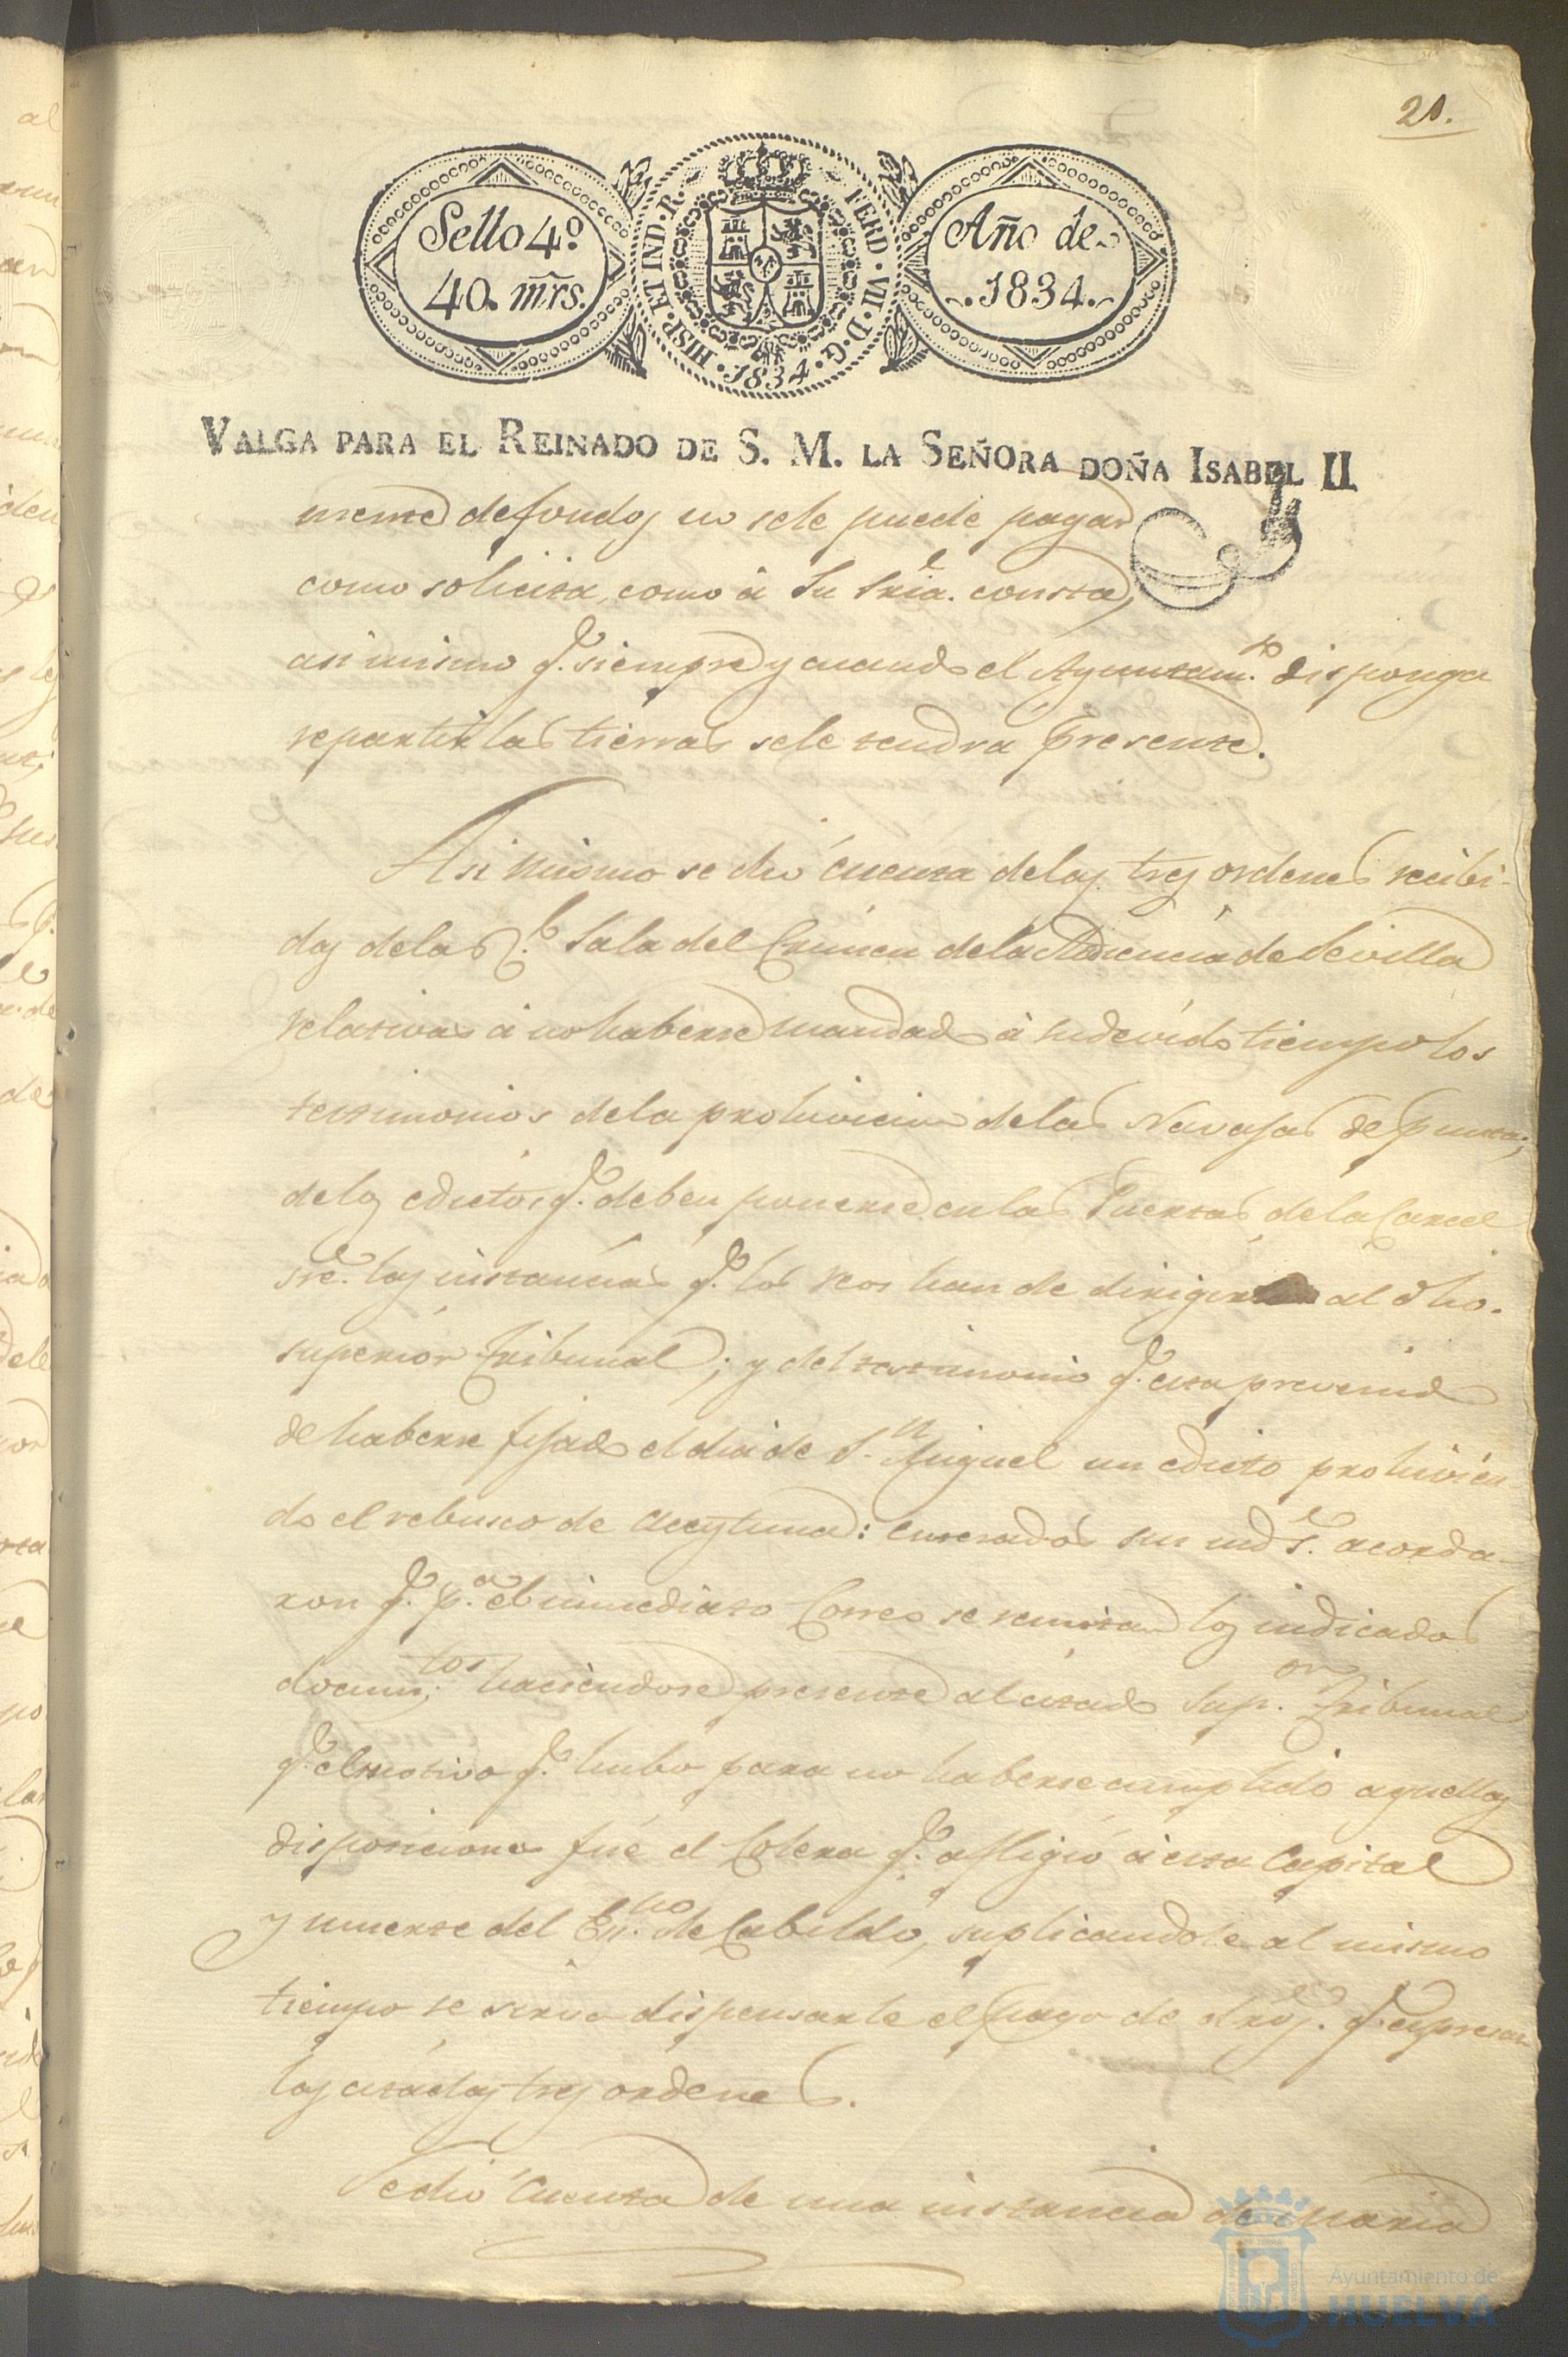 21.
Sello 4.º
40. mrs.
HISP. ET IND. R. FERD. VII. D. G. 1834.
Año de
1834.
VALGA PARA EL REINADO DE S. M. LA SEÑORA DOÑA ISABEL II
mente de fondos no se le puede pagar
como solicita, como à Su Sria. consta,
asi mismo q.e siempre y cuando el Ayuntam.to disponga
repartir las tierras se le tendra presente.
Asi mismo se dió cuenta de las tres ordenes recibi-
das de la R.l Sala del Crimen de la Audiencia de Sevilla
relativas à no haberse mandado à su devido tiempo los
testimonios de la prohivicion de las Navajas de punta;
de los edictos q.e deben ponerse en las Puertas de la Carcel
sre. las instancias q.e los reos han de dirigir al dho.
superior Tribunal; y del testimonio q.e esta prevenido
de haberse fijado el dia de S.n Miguel un edicto prohivien
do el rebusco de Aceytuna: enterados sus mds. acorda-
ron q.e p.a el inmediato Correo se remitan los indicados
docum.tos haciendose presente al citado Sup.or Tribunal
q.e el motivo q.e hubo para no haberse cumplido aquellas
disposiciones fué el Colera q.e afligió à esta Capital
y muerte del Es.no de Cabildo, suplicandole al mismo
tiempo se sirva dispensarle el pago de drs. q.e expresan
las citadas tres ordenes.
Se dió Cuenta de una instancia de Maria
Ayuntamiento de
HUELVA